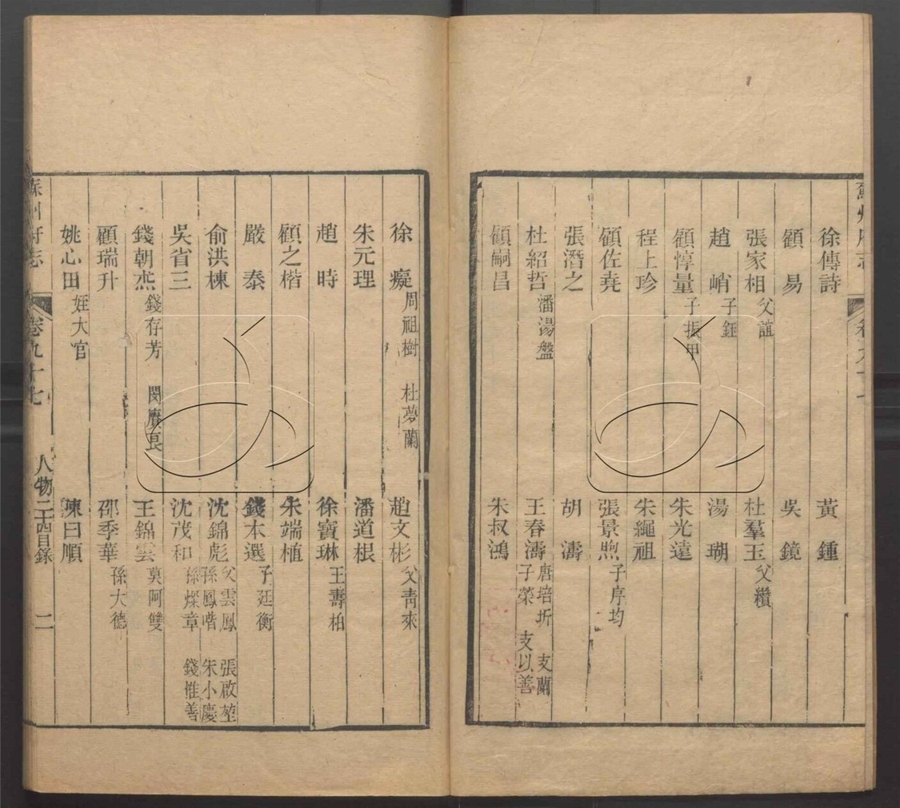 徐傅詩 黃鍾
顧易 吳鏡
張家相 父誼 杜羣玉 父繢
趙峭 子鉅 湯瑚
顧惇量 子振甲 朱光遠
程上珍 朱繩祖
顧佐堯 張景煦 子序均
張潛之 胡濤
杜紹哲 潘湯盤 王春濤 唐培圻 支蘭 子榮 支以善
顧嗣昌 朱叔鴻
徐癡 周祖樹 杜夢蘭 趙文彬 父青來
朱元理 潘道根
趙時 徐寶琳 王壽柏
顧之楷 朱端植
嚴泰 錢本選 子廷衡
俞洪棟 沈錦彪 父雲鳳 張啟堃 孫鳳喈 朱小慶
吳省三 沈茂和 孫燦章 錢惟善
錢朝杰 錢存芳 王錦雲 莫阿雙
顧瑞升 邵季華 孫大德
姚心田 姪大官 陳曰順
蘇州府志 卷九十七 人物二十四目錄 二